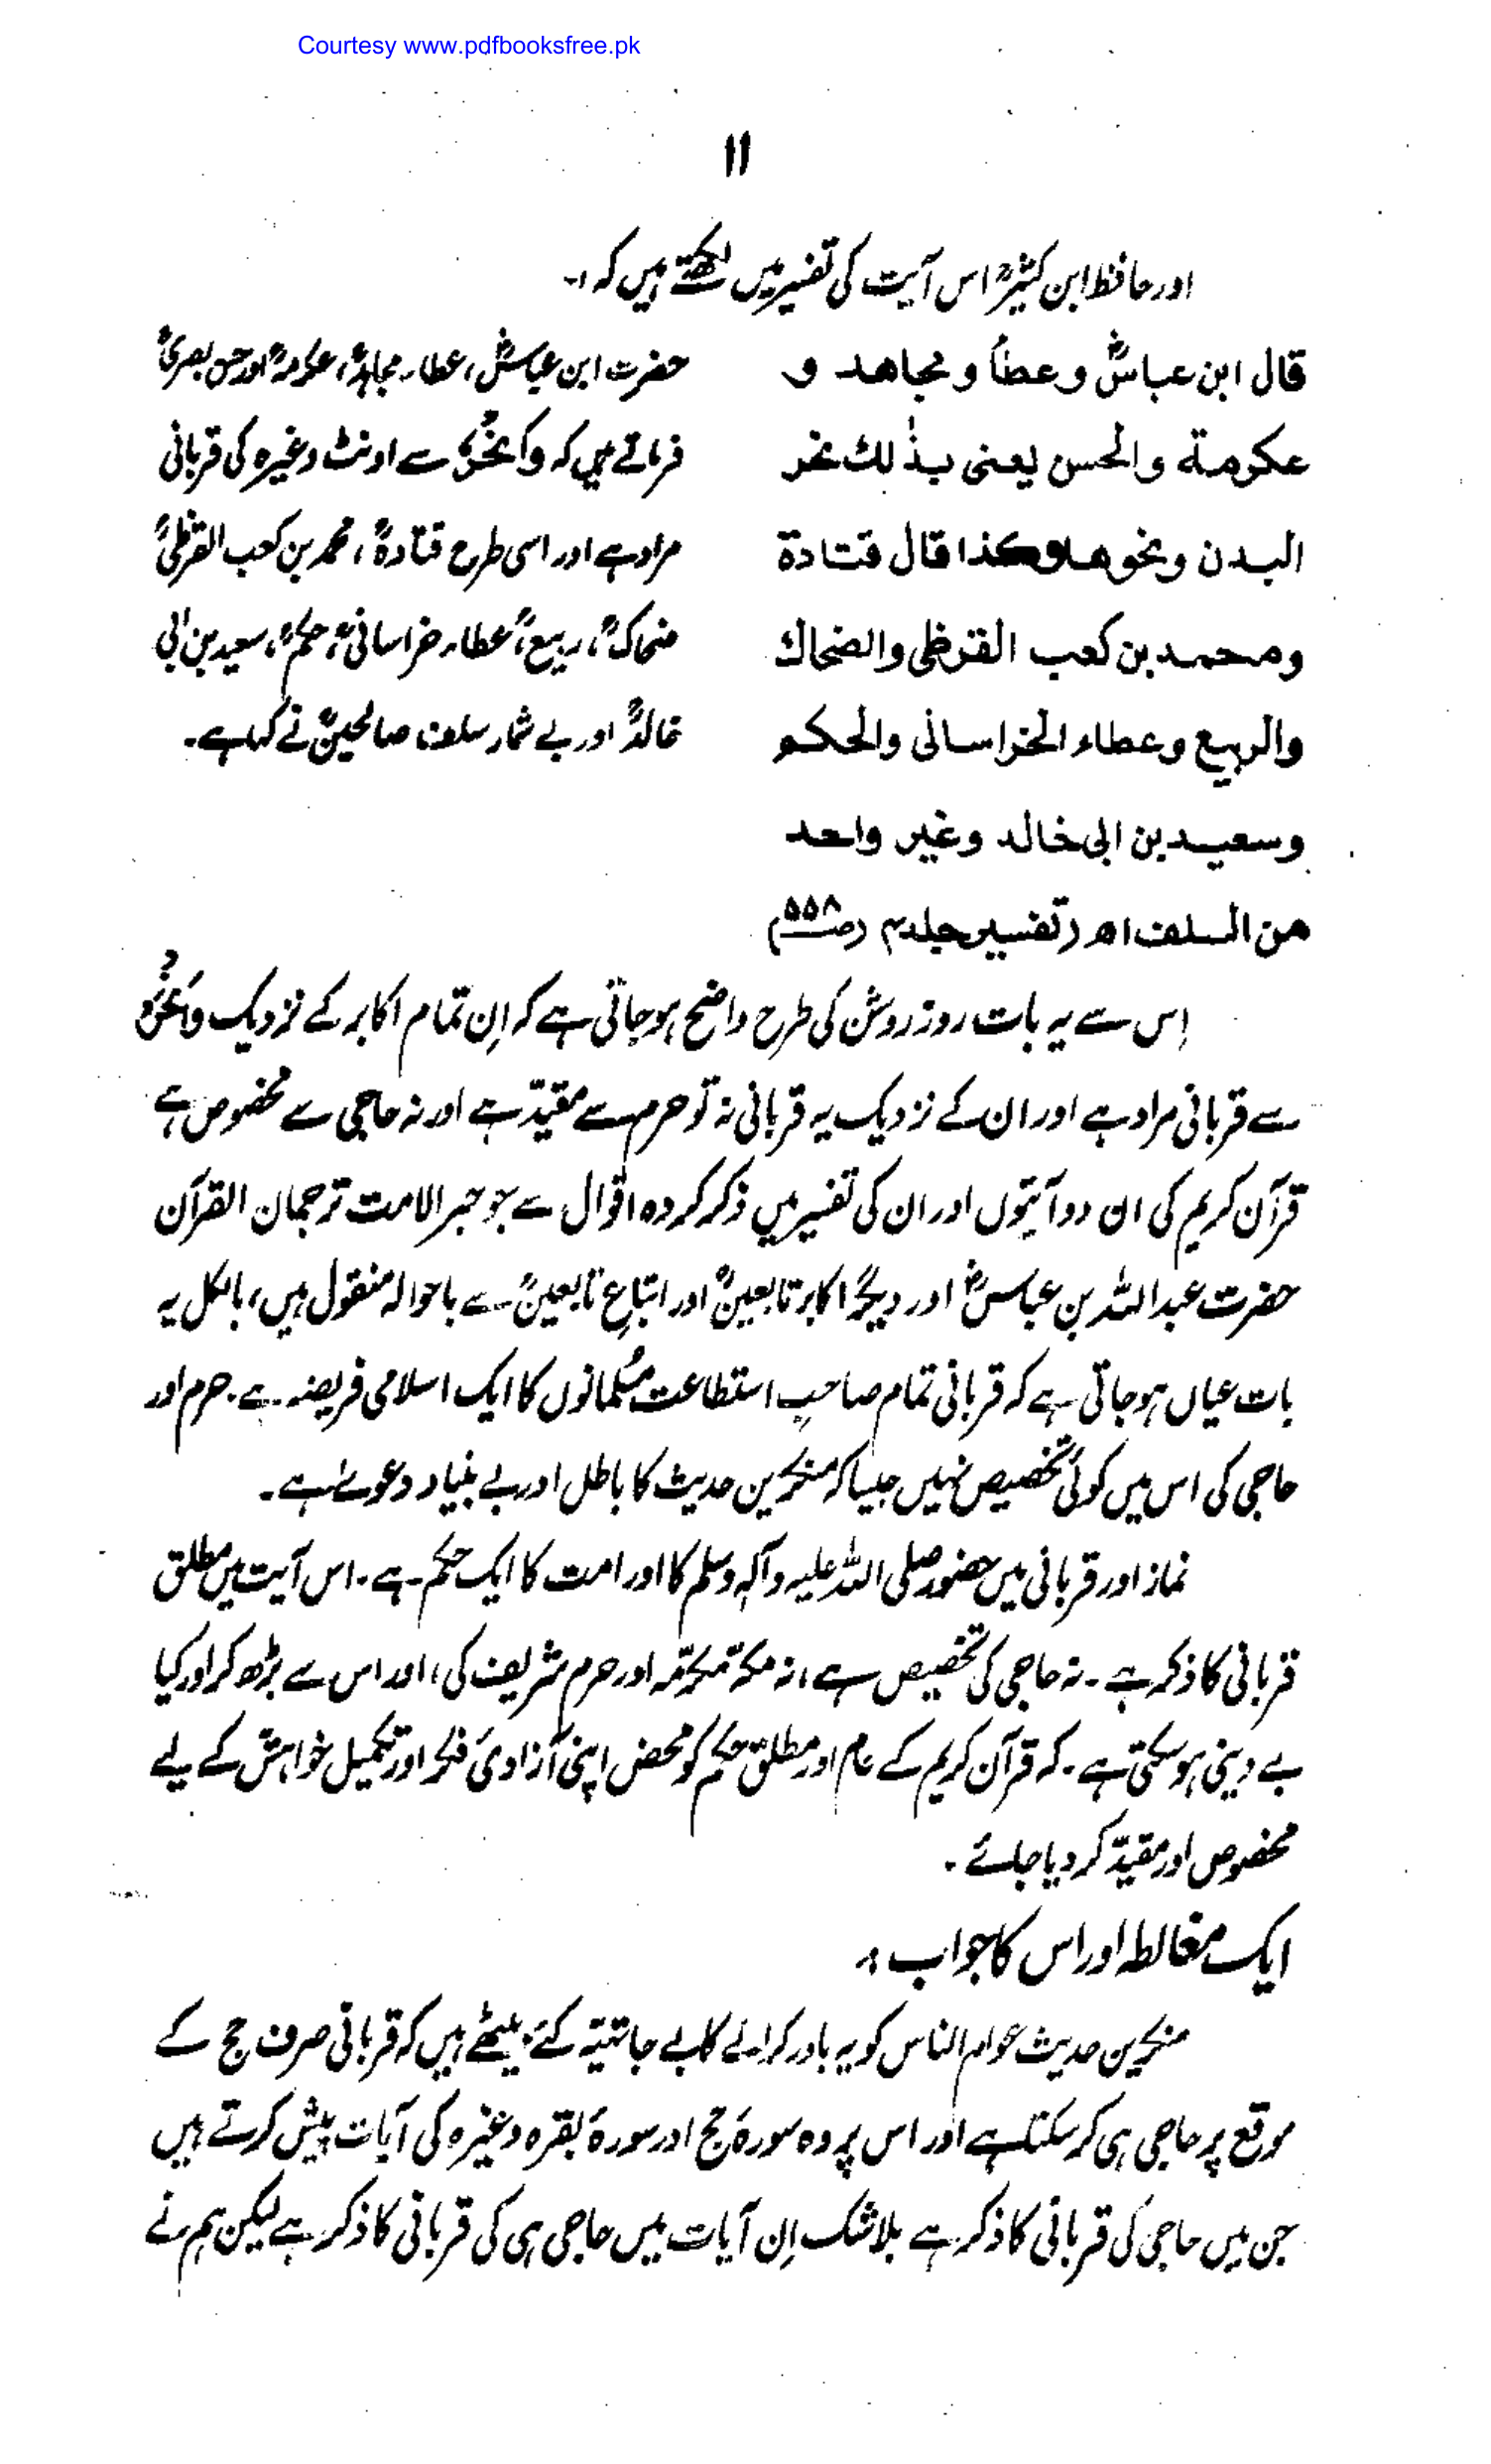 Courtesy www.pdfbooksfree.pk
۱۱
اور حافظ ابن کثیرؒ اس آیت کی تفسیر میں لکھتے ہیں کہ :-
قال ابن عباسؓ وعطاءؒ ومجاهد و
عكرمة والحسن يعنى بذٰلك نحر
البدن ونحوها وكذا قال قتادة
ومحمد بن كعب القرظى والضحاك
والربيع وعطاء الخراسانى والحكم
وسعيد بن ابى خالد وغير واحد
من السلف اھ (تفسیر جلد ۴ ص۵۵۸)
حضرت ابن عباسؓ، عطاء، مجاہدؒ، عکرمہؒ اور حسن بصریؒ
فرماتے ہیں کہ وَانْحَرْ سے اونٹ وغیرہ کی قربانی
مراد ہے اور اسی طرح قتادہؒ، محمد بن کعب القرظیؒ
ضحاکؒ، ربیعؒ، عطاء خراسانیؒ، حکمؒ، سعید بن ابی
خالدؒ اور بے شمار سلف صالحینؒ نے کہا ہے۔
اِس سے یہ بات روز روشن کی طرح واضح ہو جاتی ہے کہ اِن تمام اکابر کے نزدیک وَانْحَرْ
سے قربانی مراد ہے اور ان کے نزدیک یہ قربانی نہ تو حرم سے مقیّد ہے اور نہ حاجی سے مخصوص ہے
قرآن کریم کی ان دو آیتوں اور ان کی تفسیر میں ذکر کردہ اقوال سے جو حبر الامت ترجمان القرآن
حضرت عبداللہ بن عباسؓ اور دیگر اکابر تابعینؒ اور اتباعِ تابعینؒ سے باحوالہ منقول ہیں، بالکل یہ
بات عیاں ہو جاتی ہے کہ قربانی تمام صاحبِ استطاعت مُسلمانوں کا ایک اسلامی فریضہ ہے۔ حرم اور
حاجی کی اس میں کوئی تخصیص نہیں جیسا کہ منکرین حدیث کا باطل اور بے بنیاد دعوےٰ ہے۔
نماز اور قربانی میں حضور صلی اللہ علیہ وآلہ وسلم کا اور امت کا ایک حکم ہے۔ اس آیت میں مطلق
قربانی کا ذکر ہے۔ نہ حاجی کی تخصیص ہے، نہ مکہ مکرمہ اور حرم شریف کی، اور اس سے بڑھ کر اور کیا
بے دینی ہو سکتی ہے۔ کہ قرآن کریم کے عام اور مطلق حکم کو محض اپنی آزادیٔ فکر اور تکمیل خواہش کے لیے
مخصوص اور مقیّد کر دیا جائے۔
ایک مغالطہ اور اس کا جواب :
منکرین حدیث عوام الناس کو یہ باور کرانے کا بے جا تہیّہ کئے بیٹھے ہیں کہ قربانی صرف حج کے
موقع پر حاجی ہی کر سکتا ہے اور اس پر وہ سورۂ حج اور سورۂ بقرہ وغیرہ کی آیات پیش کرتے ہیں
جن میں حاجی کی قربانی کا ذکر ہے بلاشک اِن آیات میں حاجی ہی کی قربانی کا ذکر ہے لیکن ہم نے